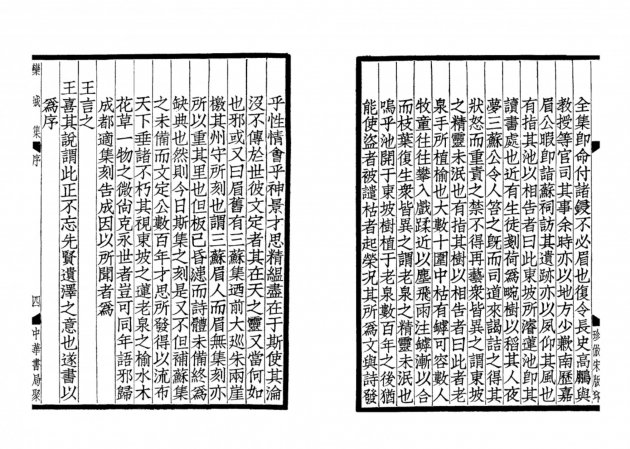 全集即命付諸鋟不必眉也復令長史高鵬與
教授等官司其事余時亦以地方少歉南歷嘉
眉公暇即詣蘇祠訪其遺跡亦以夙仰其風也
有指其池以相告者曰此東坡所濬蓮池即其
讀書處也近有生徒剗荷為畹樹以稻其人夜
夢三蘇公令人笞之既而司道來謁詰之得其
狀怒而重責之禁不得再藝衆皆異之謂東坡
之精靈未泯也有指其樹以相告者曰此者老
泉手所植榆也大數十圍中枯有罅可容數人
牧童往往攀入戲蹂近以塵飛雨注罅漸以合
而枝葉復生衆皆異之謂老泉之精靈未泯也
嗚乎池開于東坡樹植于老泉數百年之後猶
能使盜者被譴枯者起榮况其所為文與詩發
珍倣宋版印
乎性情會乎神景才思精蘊盡在于斯使其淪
沒不傳於世彼文定者其在天之靈又當何如
也邪或又曰眉舊有三蘇集迺前大巡朱兩崖
檄其州守所刻也謂三蘇眉人而眉無集刻亦
所以重其里也但板已昏漶而詩體未備終為
缺典也然則今日斯集之刻是又不但補蘇集
之未備而文定公數百年才思所發得以流布
天下垂諸不朽其視東坡之蓮老泉之榆水木
花草一物之微尙克永世者豈可同年語邪歸
成都適集刻告成因以所聞者為
王言之
王喜其說謂此正不忘先賢遺澤之意也遂書以
為序
欒城集 序
四
中華書局聚